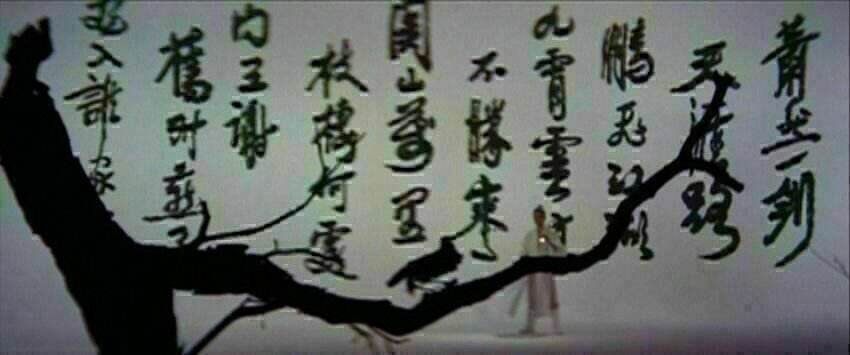 蕭然一劍
天涯路
鵬飛江湖
九霄雲外
不勝寒
關山萬里
枝棲何處
内王謝
舊時燕子
飛入誰家